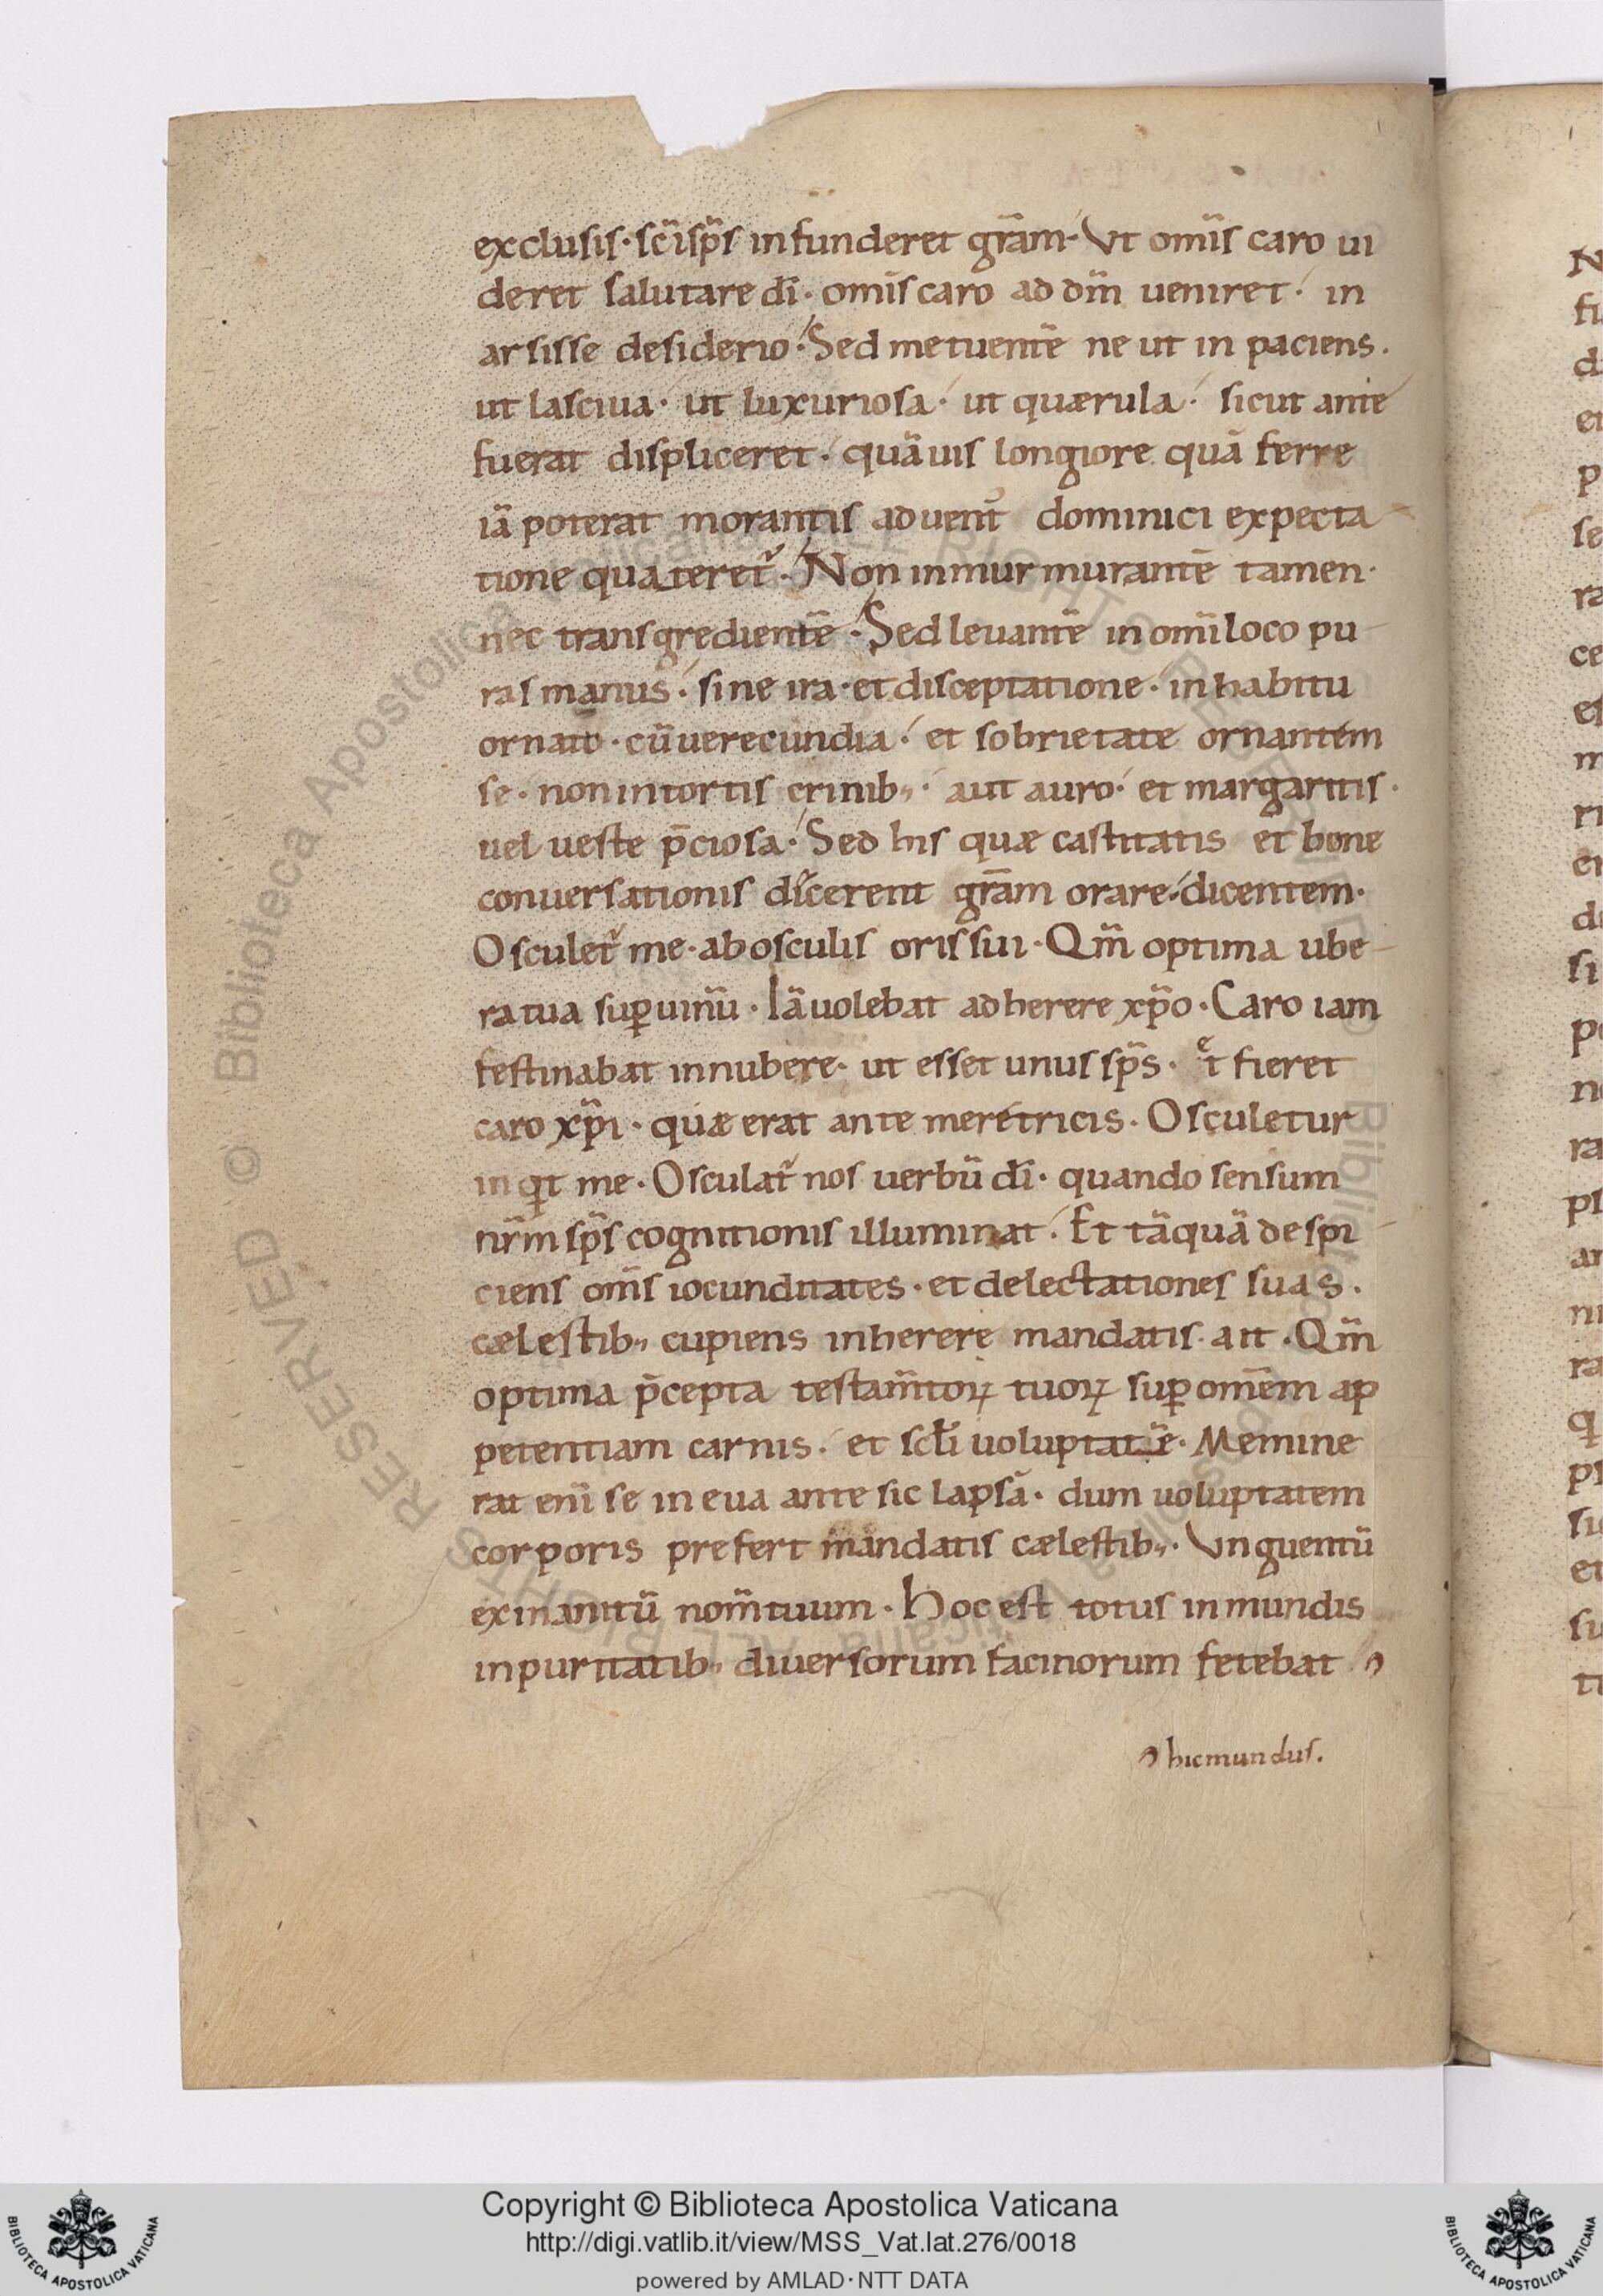 exclusis· sc̅isp̅s infunderet gr̅am· Vt omi̅s caro ui
deret salutare di̅· omi̅s caro ad dm̅ ueniret· in
arsisse desiderio· Sed metuente̅ ne ut in paciens·
ut lasciua· ut luxuriosa· ut quærula· sicut ante
fuerat displiceret· qua̅uis longiore qua̅ ferre
ia̅ poterat morantis aduent᷑ dominici expecta
tione quateret᷑· Non inmurmurante̅ tamen·
nec transgrediente̅· Sed leuante̅ in omi̅ loco pu
ras manus· sine ira· et disceptatione· in habitu
ornato· cu̅ uerecundia· et sobrietate ornantem
se· non intortis crinib,,· aut auro· et margaritis·
uel ueste p̅ciosa· Sed his quæ castitatis et bone
conuersationis dicerent gr̅am orare· dicentem·
Osculet᷑ me· ab osculis oris sui· Qm̅ optima ube
ra tua sup̱ uinu̅· Ia̅ uolebat adherere xp̅o· Caro iam
festinabat innubere· ut esset unus sp̅s· et fieret
caro xp̅i· quæ erat ante meretricis· Osculetur
inqͥt me· Osculat᷑ nos uerbu̅ di̅· quando sensum
nr̅m sp̅s cognitionis illuminat· Et ta̅qua̅ despi
ciens om̅s iocunditates· et delectationes suas·
cælestib,, cupiens inherere mandatis· ait· Qm̅
optima p̅cepta testam̅toꝝ tuoꝝ sup̱ ome̅m ap
petentiam carnis· et scl̅i uoluptate̅· Memine
rat eni̅ se in eua ante sic lapsa̅· dum uoluptatem
corporis prefert mandatis cælestib,,· Vnguentu̅
exinanitu̅ nom̅ tuum· Hoc est totus inmundis
inpuritatib,, diuersorum facinorum fetebat
hicmundus.
Copyright © Biblioteca Apostolica Vaticana
http://digi.vatlib.it/view/MSS_Vat.lat.276/0018
powered by AMLAD·NTT DATA